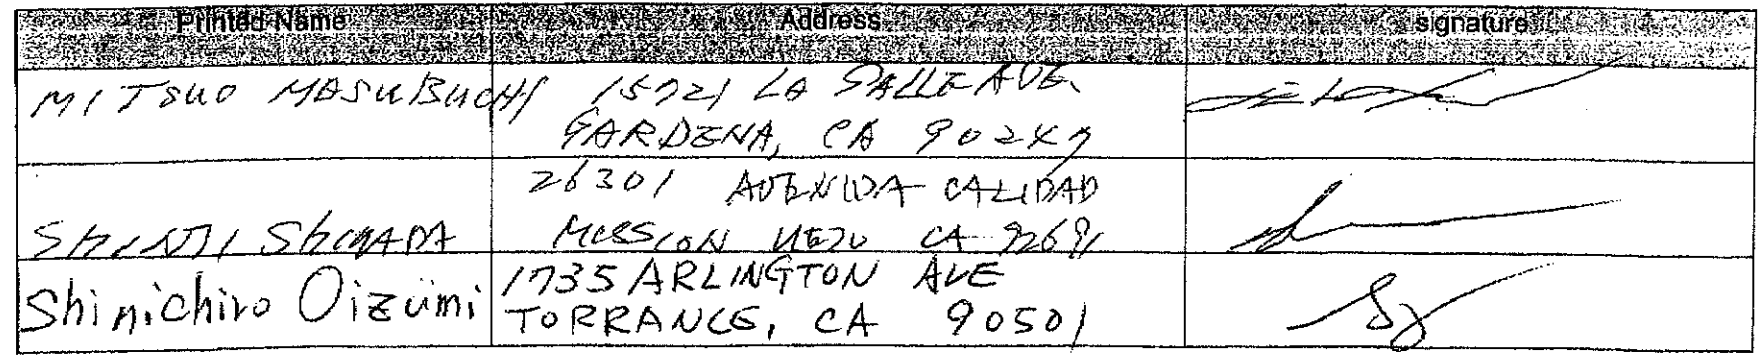 Printed Name Address signature
MITSUO MASUBUCHI 15721 LA SALLE AVE.
GARDENA, CA 90247
26301 AVENIDA CALIDAD
SHINJI SHIMADA MISSION VIEJO CA 92691
Shinichiro Oizumi 1735 ARLINGTON AVE
TORRANCE, CA 90501